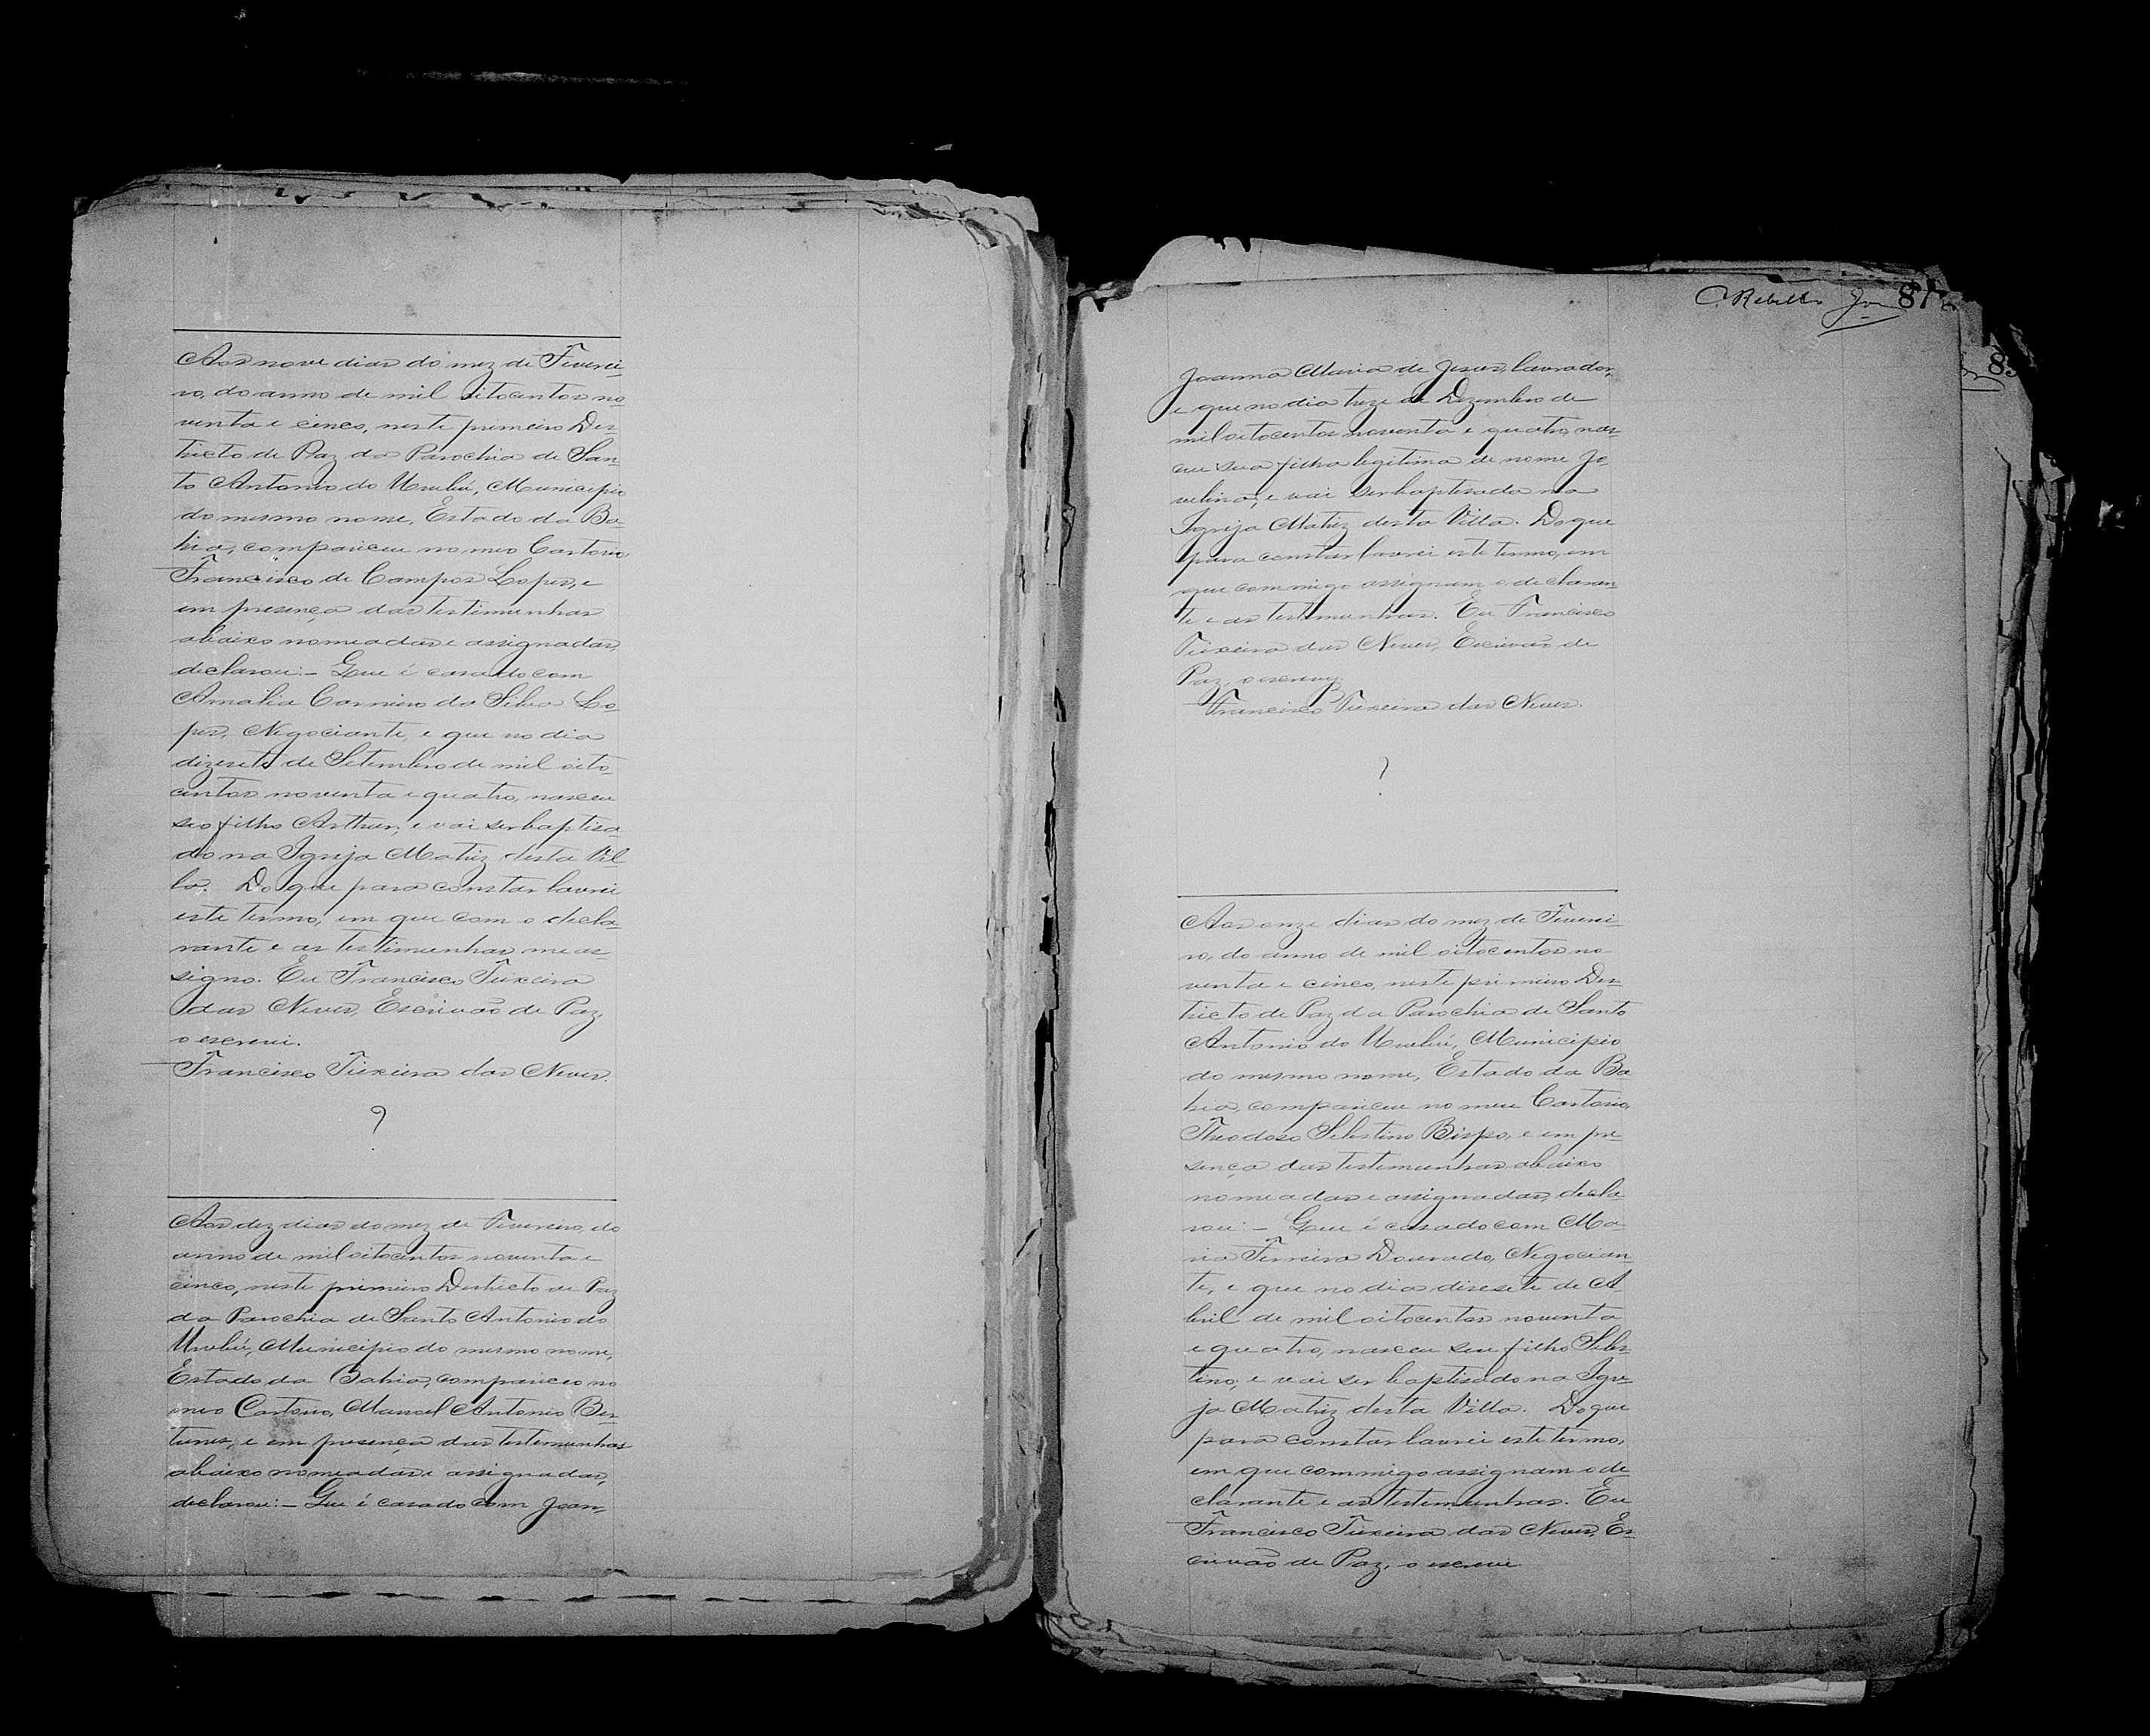 Aos nove dias do mez de Feverei-
ro, do anno de mil oitocentos no-
venta e cinco, neste primeiro Des-
tricto de Paz da Parochia de San-
to Antonio do Urubú, Municipio
do mesmo nome, Estado da Ba-
hia, compareceu no meo Cartorio
Francisco de Campos Lopes, e
em presença das testimunhas
abaixo nomeadas e assignadas,
declarou:- Que é casado com
Amalia Carneiro da Silva Lo-
pes, Negociante, e que no dia
dizesete de Setembro de mil oito-
centos noventa e quatro, nasceu
seo filho Arthur, e vai ser baptisa-
do na Igreja Matriz desta Vil-
la. Do que para constar lavrei
este termo, em que com o decla-
rante e as testimunhas me as-
signo. Eu Francisco Teixeira
das Neves, Escrivão de Paz
o escrevi.
Francisco Teixeira das Neves.
?
Aos dez dias do mez de Fevereiro, do
anno de mil oitocentos noventa e
cinco, neste primeiro Destricto de Paz
da Parochia de Santo Antonio do
Urubú, Municipio do mesmo nome,
Estado da Bahia, compareceo no
meo Cartorio, Manoel Antonio
e em presença das testemunhas
abaixo nomeadas e assignadas,
declarou:- Que é casado com Joan-
C. Rebello Jor 87
85
Joanna Maria de Jesus, lavrador,
e que no dia treze de Dezembro de
mil oitocentos noventa e quatro, nas-
ceu sua filha legitima de nome Jo-
velina, e vai ser baptisada na
Igreja Matriz desta Villa. Do que
para constar lavrei este termo, em
que commigo assignam o declaran-
te e as testimunhas. Eu Francisco
Teixeira das Neves, Escrivão de
Paz, o escrevy
Francisco Teixeira das Neves.
?
Aos onze dias do mez de Feverei-
ro, do anno de mil oitocentos no
venta e cinco, neste primeiro Des-
tricto de Paz da Parochia de Santo
Antonio do Urubú, Municipio
do mesmo nome, Estado da Ba-
hia, compareceu no meu Cartorio,
Theodoso Selestino Bispo, e em pre-
sença das testemunhas abaixo
nomeadas e assignadas, decla-
rou:- Que é casado com Ma-
ria Ferreira Dourado, Negocian-
te, e que no dia diseseti de A-
bril de mil oitocentos noventa
e quatro, nasceu seu filho Seles-
tino, e vai ser baptisado na Igre-
ja Matriz desta Villa. Do que
para constar lavrei este termo,
em que commigo assignam o de-
clarante e as testemunhas. Eu
Francisco Teixeira das Neves, Es-
crivão de Paz, o escrevi